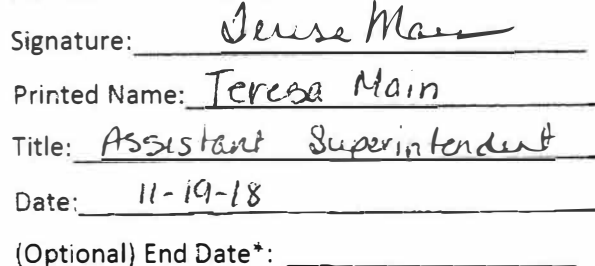 Signature: Terese Main
Printed Name: Teresa Main
Title: Assistant Superintendent
Date: 11-19-18
(Optional) End Date*: